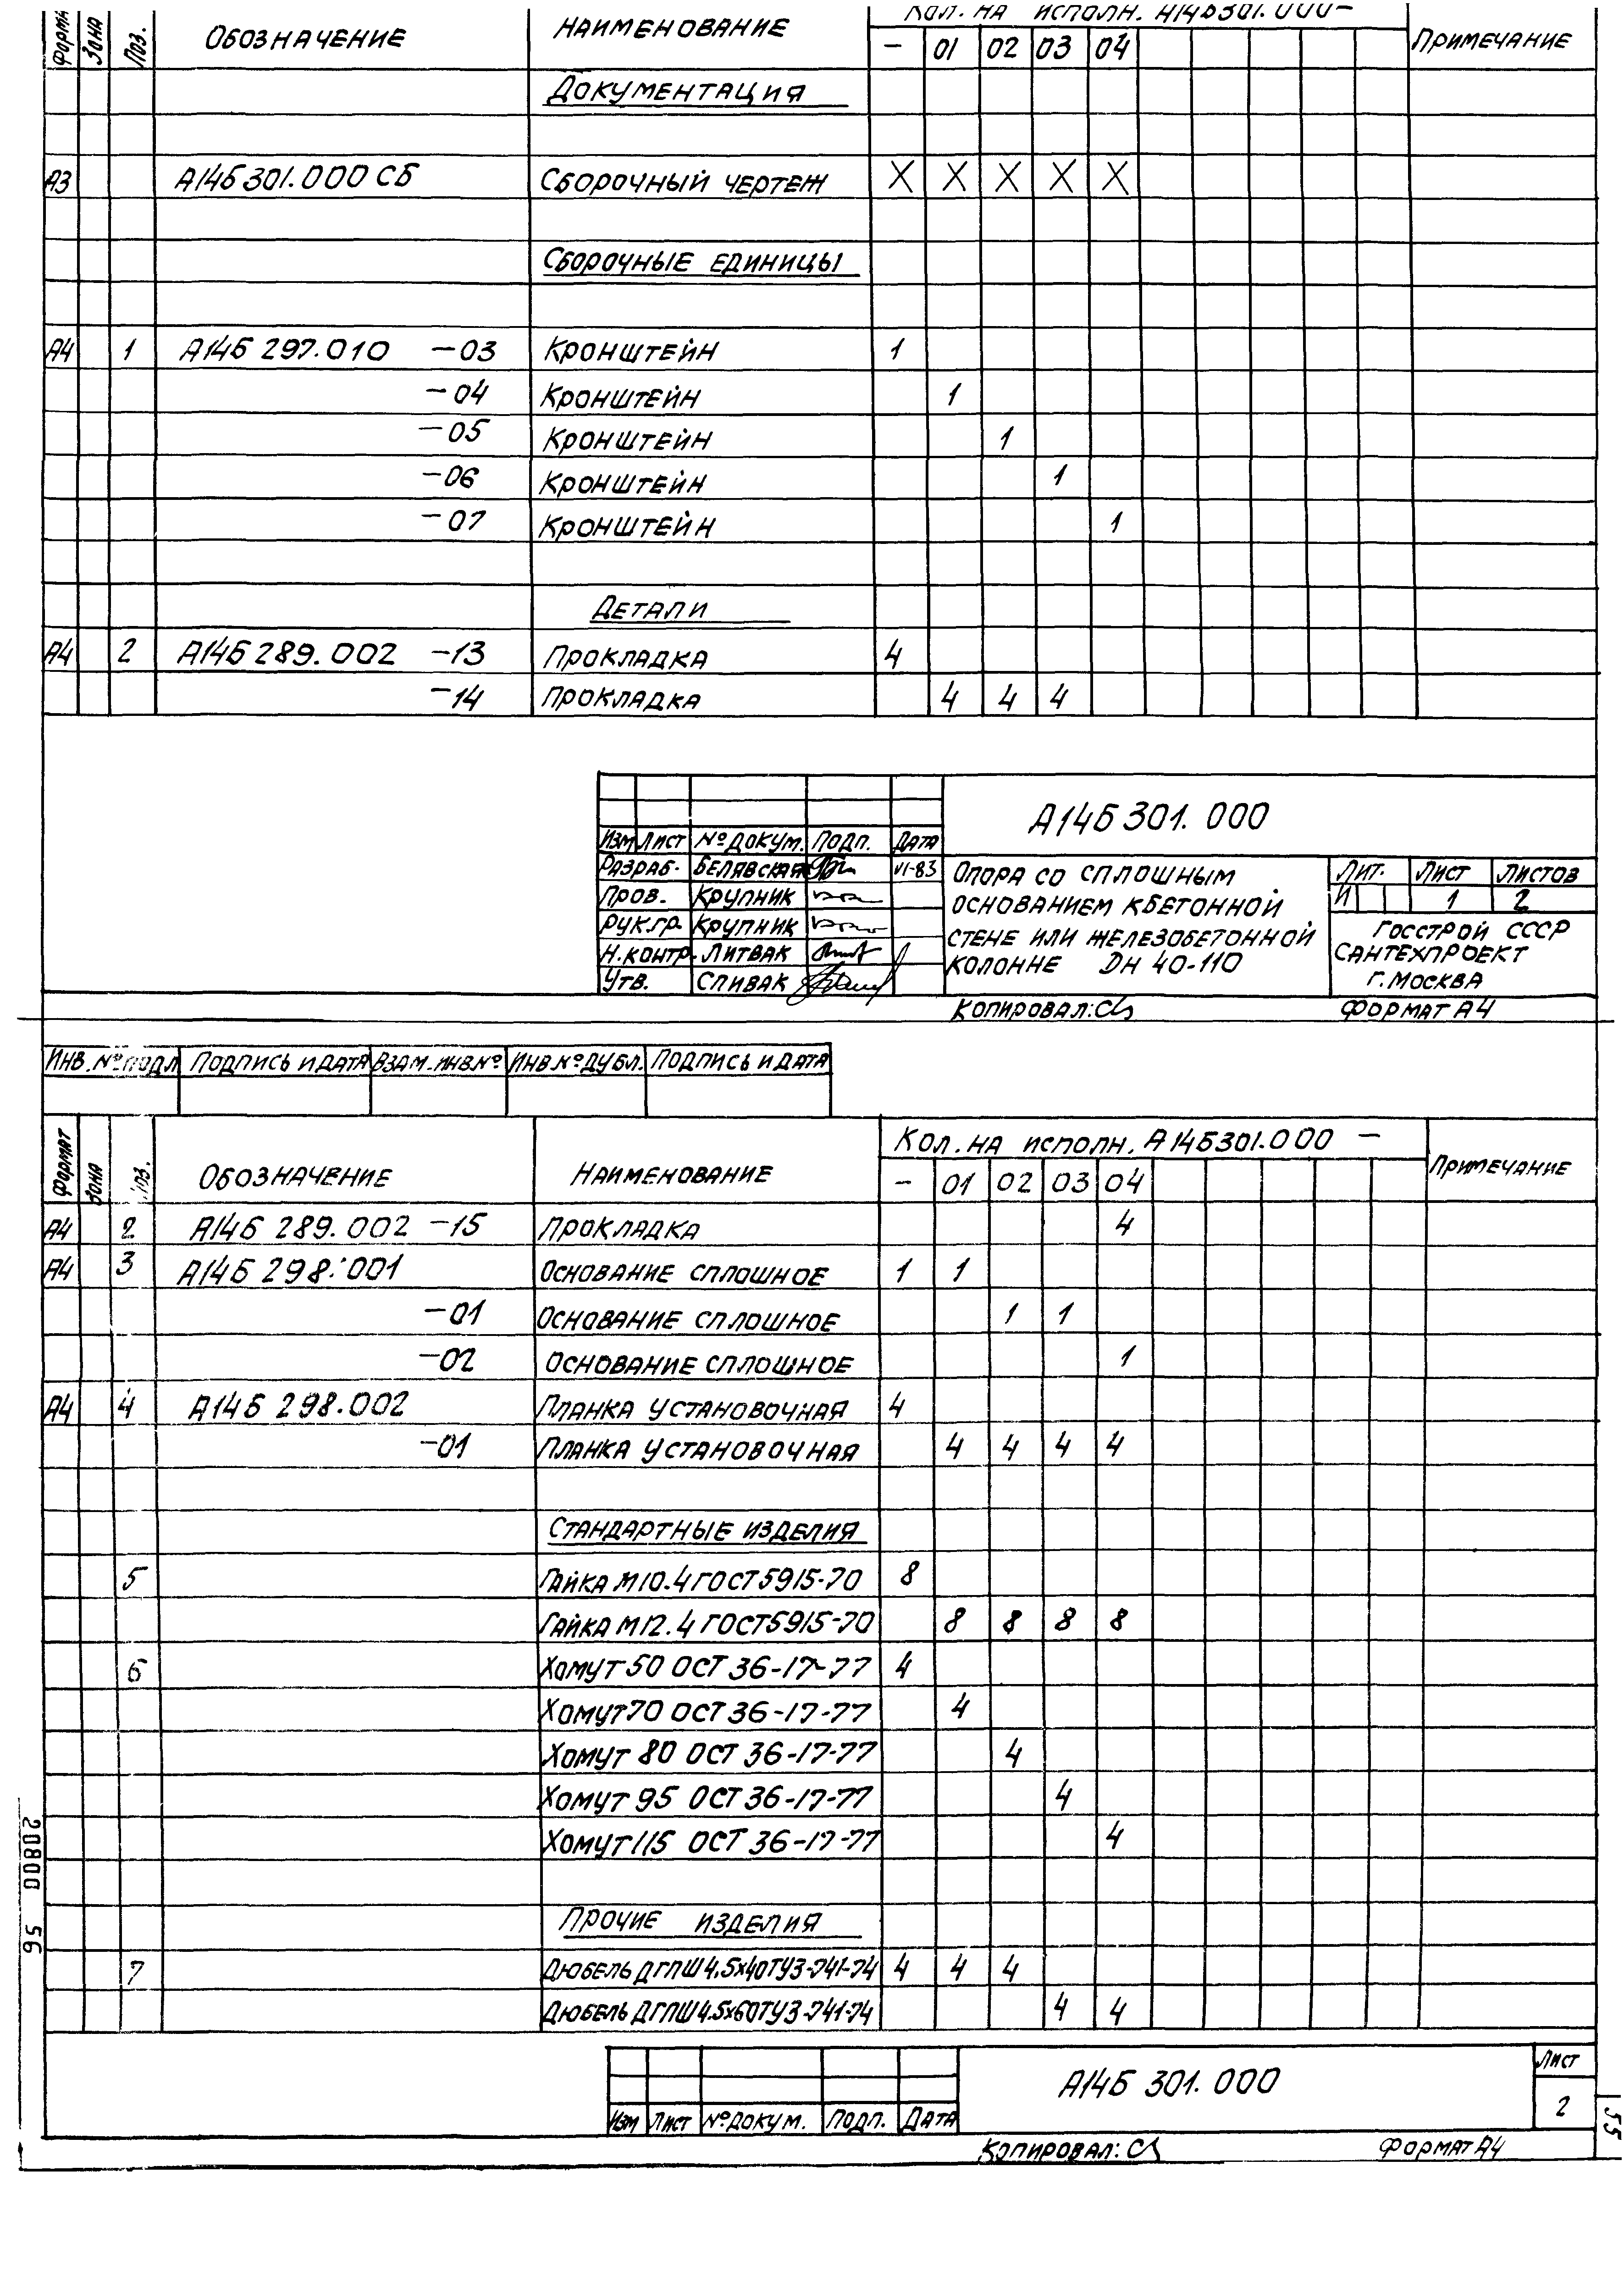 Кол. на исполн. А14Б301.000-
Формат Зона Поз. Обозначение Наименование - 01 02 03 04 Примечание
Документация
А3 А14Б301.000 СБ Сборочный чертеж X X X X X
Сборочные единицы
А4 1 А14Б 297.010 -03 Кронштейн 1
-04 Кронштейн 1
-05 Кронштейн 1
-06 Кронштейн 1
-07 Кронштейн 1
Детали
А4 2 А14Б 289.002 -13 Прокладка 4
-14 Прокладка 4 4 4
А14Б 301.000
Изм Лист № докум. Подп. Дата
Разраб. Белявская VI-83
Пров. Крупник
Рук.гр. Крупник
Н.контр. Литвак
Утв. Спивак
Опора со сплошным
основанием к бетонной
стене или железобетонной
колонне Дн 40-110
Лит. Лист Листов
И 1 2
Госстрой СССР
Сантехпроект
г. Москва
Копировал: Формат А4
Инв. № подл Подпись и дата Взам. инв. № Инв. № дубл. Подпись и дата
Кол. на исполн. А14Б301.000 -
Формат Зона Поз. Обозначение Наименование - 01 02 03 04 Примечание
А4 2 А14Б 289.002 -15 Прокладка 4
А4 3 А14Б 298.001 Основание сплошное 1 1
-01 Основание сплошное 1 1
-02 Основание сплошное 1
А4 4 А14Б 298.002 Планка установочная 4
-01 Планка установочная 4 4 4 4
Стандартные изделия
5 Гайка М10.4 ГОСТ 5915-70 8
Гайка М12.4 ГОСТ 5915-70 8 8 8 8
6 Хомут 50 ОСТ 36-17-77 4
Хомут 70 ОСТ 36-17-77 4
Хомут 80 ОСТ 36-17-77 4
Хомут 95 ОСТ 36-17-77 4
Хомут 115 ОСТ 36-17-77 4
Прочие изделия
7 Дюбель ДГПШ 4.5х40 ТУ3-741-74 4 4 4
Дюбель ДГПШ 4.5х60 ТУ3-741-74 4 4
20800 56
А14Б 301.000
Лист
2
Изм Лист № докум. Подп. Дата
Копировал: Формат А4
55